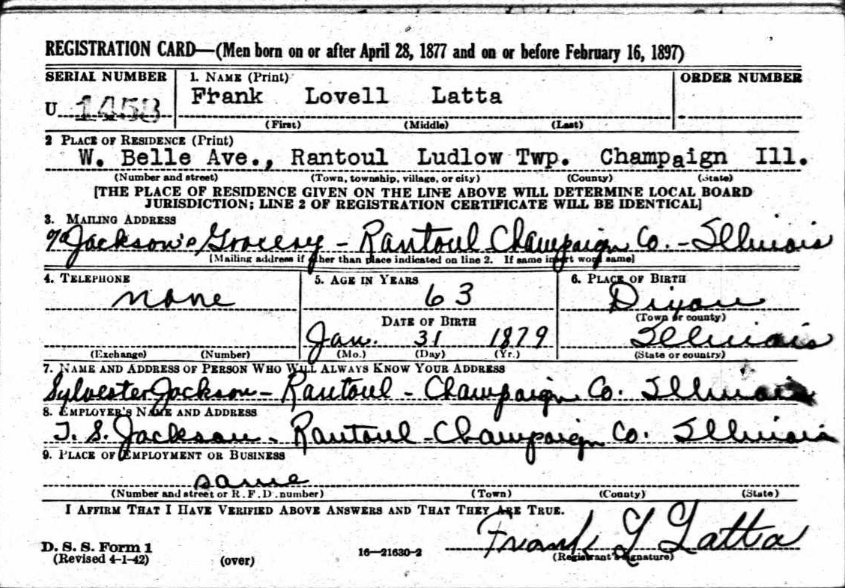 REGISTRATION CARD—(Men born on or after April 28, 1877 and on or before February 16, 1897)
SERIAL NUMBER 1. NAME (Print) ORDER NUMBER
U 1453 Frank Lovell Latta
(First) (Middle) (Last)
2 PLACE OF RESIDENCE (Print)
W. Belle Ave., Rantoul Ludlow Twp. Champaign Ill.
(Number and street) (Town, township, village, or city) (County) (State)
[THE PLACE OF RESIDENCE GIVEN ON THE LINE ABOVE WILL DETERMINE LOCAL BOARD
JURISDICTION; LINE 2 OF REGISTRATION CERTIFICATE WILL BE IDENTICAL]
3. MAILING ADDRESS
% Jackson's Grocery - Rantoul Champaign Co. - Illinois
[Mailing address if other than place indicated on line 2. If same insert word same]
4. TELEPHONE 5. AGE IN YEARS 6. PLACE OF BIRTH
none 63 Dixon
(Town or county)
DATE OF BIRTH
Jan. 31 1879 Illinois
(Exchange) (Number) (Mo.) (Day) (Yr.) (State or country)
7. NAME AND ADDRESS OF PERSON WHO WILL ALWAYS KNOW YOUR ADDRESS
Sylvester Jackson - Rantoul - Champaign Co. Illinois
8. EMPLOYER'S NAME AND ADDRESS
T. S. Jackson - Rantoul - Champaign Co. Illinois
9. PLACE OF EMPLOYMENT OR BUSINESS
same
(Number and street or R. F. D. number) (Town) (County) (State)
I AFFIRM THAT I HAVE VERIFIED ABOVE ANSWERS AND THAT THEY ARE TRUE.
Frank L Latta
D. S. S. Form 1 (Registrant's signature)
(Revised 4-1-42) (over) 16—21630-2